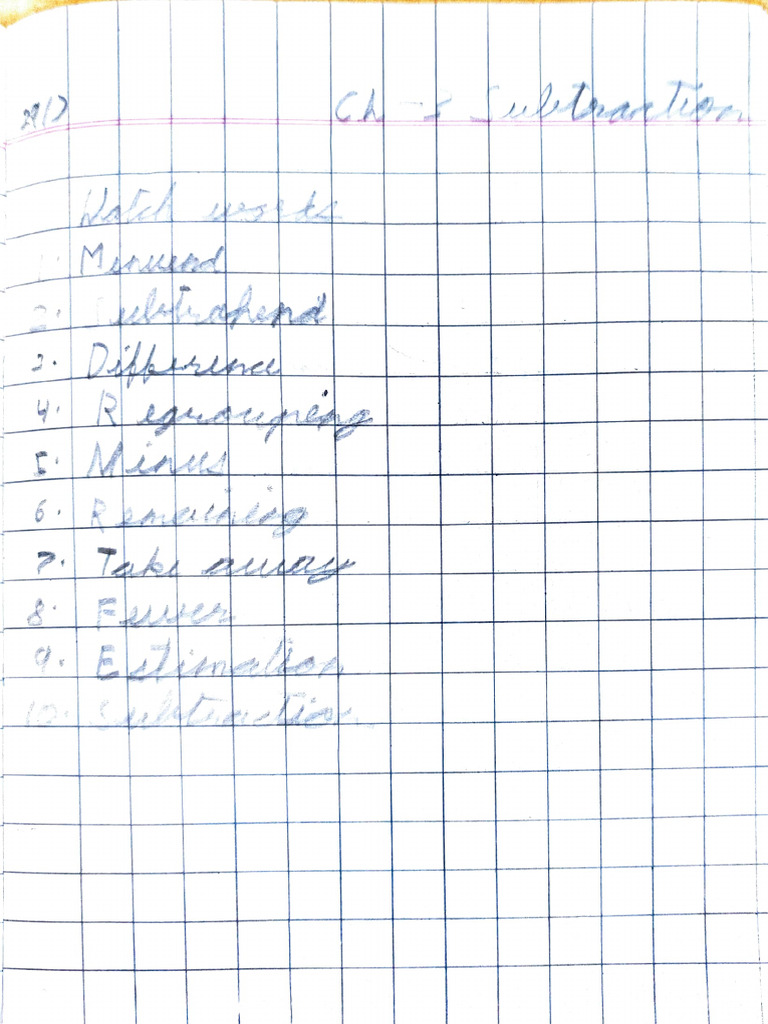 Ch - 3 Subtraction
Watch words
1. Minuend
2. Subtrahend
3. Difference
4. Regrouping
5. Minus
6. Remaining
7. Take away
8. Fewer
9. Estimation
10. Subtraction